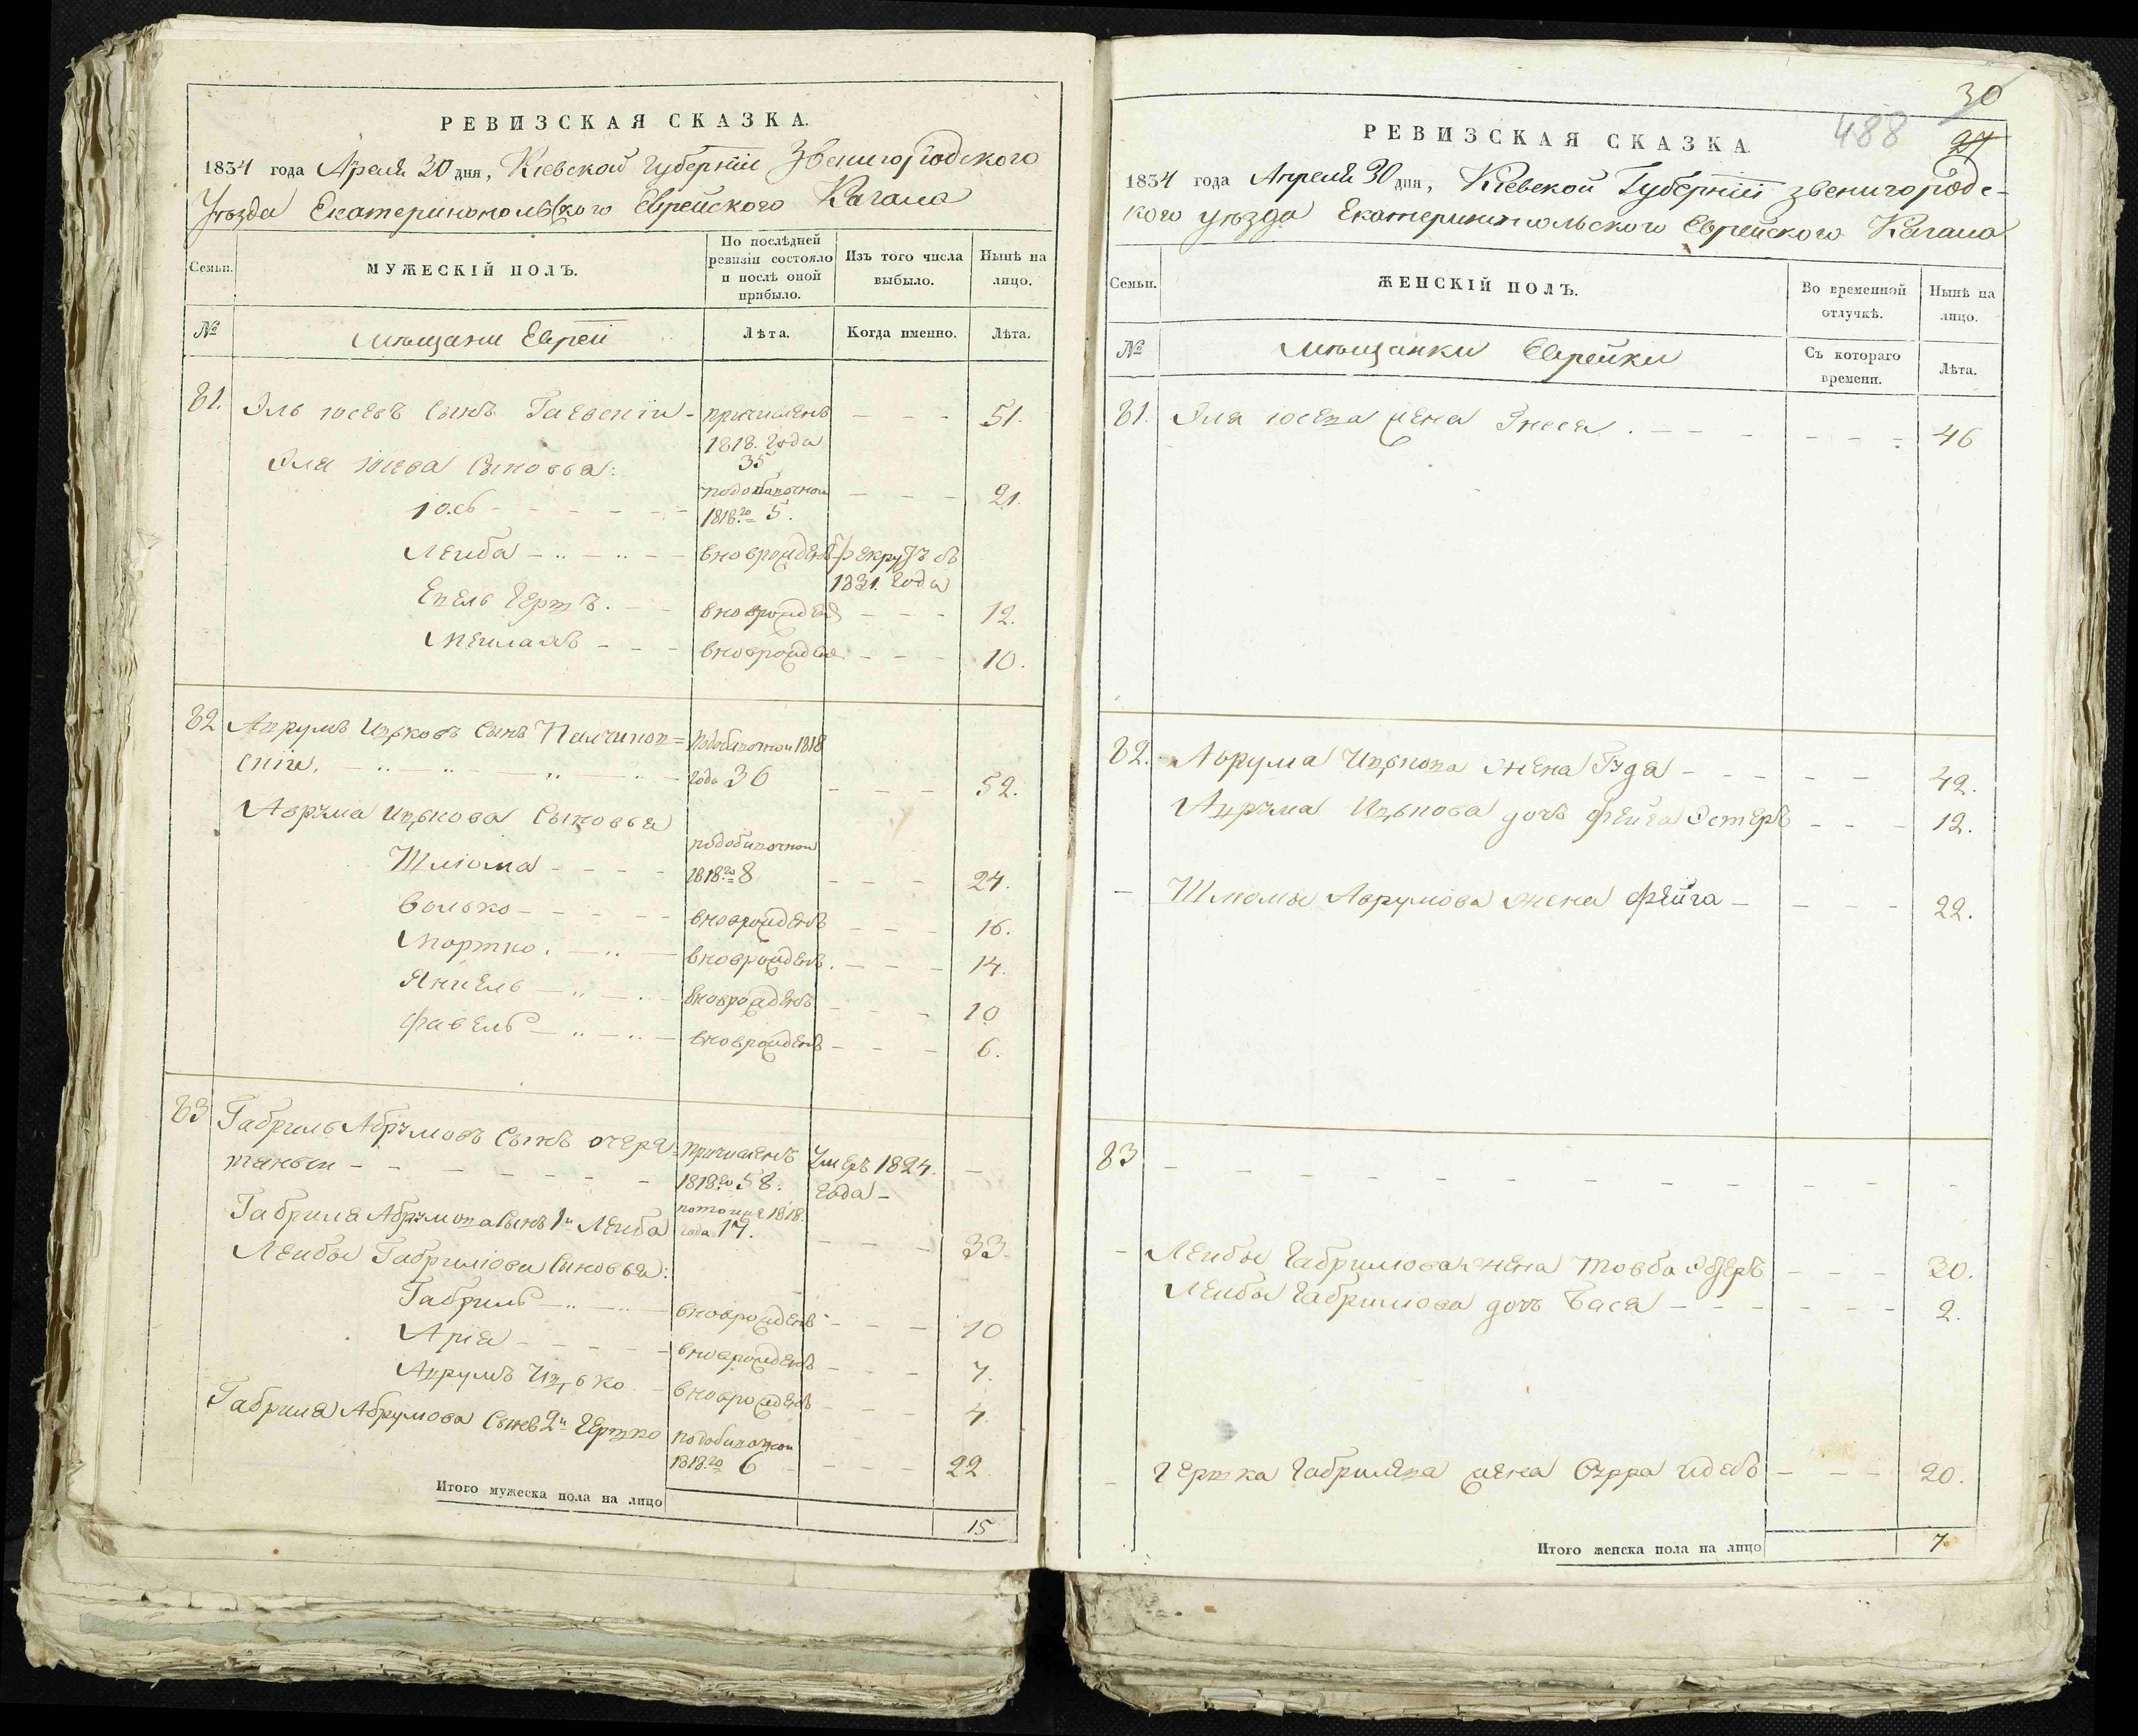 РЕВИЗСКАЯ СКАЗКА.
1834 года Апреля 30 дня, Киевской Губернии Звенигородского
Уѣзда Екатеринопольского Еврейского Кагала
Семьи.
МУЖЕСКІЙ ПОЛЪ.
По послѣдней ревизіи состояло и послѣ оной прибыло.
Изъ того числа выбыло.
Нынѣ на лицо.
№
мѣщани Евреи
Лѣта.
Когда именно.
Лѣта.
81. Эль Iосевъ Сынъ - причисленъ 1818. года 35 - - - 51.
Эля Iосева Сыновья:
Iось - - - 1818.го 5. - - - 21.
Леиба - - вноврожденъ рекрутъ въ 1831. года
Герть. - - вноврожден - - - 12.
Меилахъ - - - вноврожден - - - 10.
82 Аврумъ Ицковъ Сынъ 1818
года 36 - - - 52.
Аврума Ицькова Сыновья
Шлiома - - - - 1818.го 8 - - - 24.
Волько - - - - вноврожденъ - - - 16.
Мортко. - - вноврожденъ. - - - 14.
Янкель - - вноврожденъ - - - 10
Файвель - - вноврожденъ - - - 6.
83 Габриль Абрумовъ Сынъ причисленъ Умеръ 1824. -
- - - - 1818.го 58. года -
Габриля Абрумова Сынъ 1й Леиба 1818. года 17. - - - 33.
Леибы Габрилiова Сыновья:
Габриль - - вноврожденъ - - - 10
Арiя - - - - - вноврожденъ - - - 7.
Аврумъ Ицько - вноврожденъ - - - 4.
Габриля Абрумова Сынъ 2й Гершко 1818.го 6 - - - - 22.
Итого мужеска пола на лицо
15
30
488
27
РЕВИЗСКАЯ СКАЗКА
1834 года Апреля 30 дня, Киевской Губернии Звенигородс-
кого уѣзда Екатеринопольского Еврейского Кагала
Семьи.
ЖЕНСКІЙ ПОЛЪ.
Во временной отлучкѣ.
Нынѣ на лицо.
№
мѣщанки Еврейки
Съ котораго времени.
Лѣта.
81. Эля Iосева жена - - - - - - 46
82. Аврума Ицькова жена - - - - - 42.
Аврума Ицькова дочь Фейга Эстеръ - - - 12.
- Шлiомы Аврумова жена Фейга - - - - 22.
83 - - - - - - - - - - - - -
- Леибы Габрилова жена Товба - - - 30.
Леибы Габрилiова дочь Бася - - - - - - 2.
- Гершка Габрилева жена Сурра - - - 20.
Итого женска пола на лицо
7.